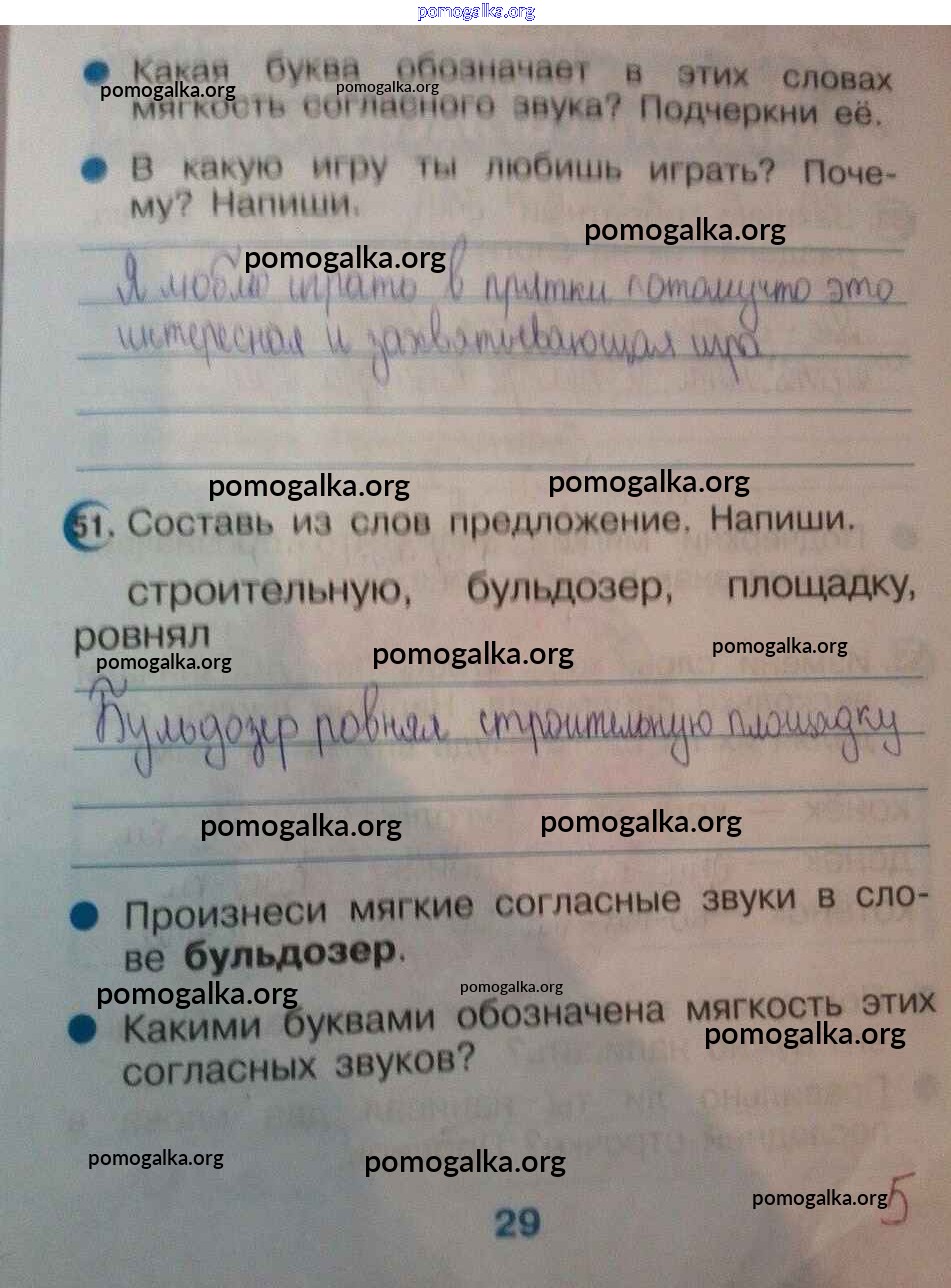 pomogalka.org
Какая буква обозначает в этих словах
pomogalka.org pomogalka.org
мягкость согласного звука? Подчеркни её.
В какую игру ты любишь играть? Поче-
му? Напиши.
pomogalka.org
pomogalka.org
Я люблю играть в прятки потомучто это
интересная и захвятывающая игра
pomogalka.org pomogalka.org
51. Составь из слов предложение. Напиши.
строительную, бульдозер, площадку,
ровнял
pomogalka.org pomogalka.org pomogalka.org
Бульдозер ровнял строительную площадку
pomogalka.org pomogalka.org
Произнеси мягкие согласные звуки в сло-
ве бульдозер.
pomogalka.org pomogalka.org
Какими буквами обозначена мягкость этих
pomogalka.org
согласных звуков?
pomogalka.org pomogalka.org
pomogalka.org 5
29